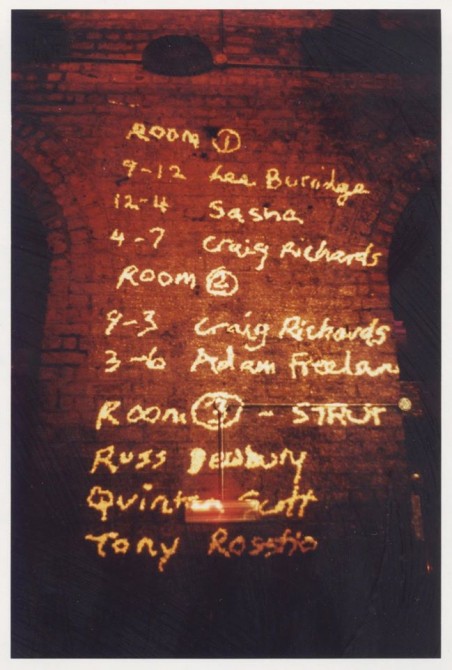 Room ①
9-12 Lee Burridge
12-4 Sasha
4-7 Craig Richards
Room ②
9-3 Craig Richards
3-6 Adam Freelan
Room ③ - STRUT
Russ Dewbury
Quinten Scott
Tony Rosstio